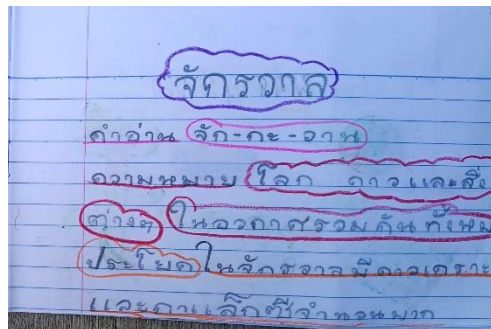 จักรวาล
คำอ่าน จัก-กะ-วาน
ความหมาย โลก ดาวและสิ่ง
ต่างๆ ในอวกาศรวมกันทั้งหม
ประโยค ในจักรวาลมีดาวเคราะ
และกาแล็กซีจำนวนมาก